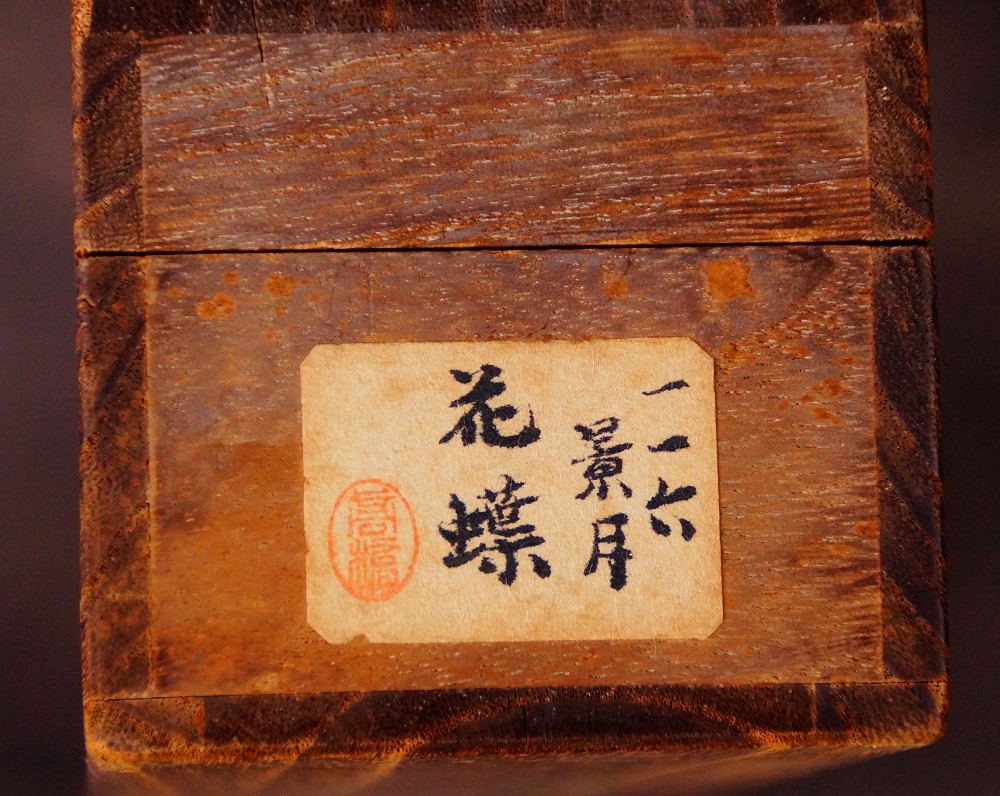 一一六
景月
花蝶